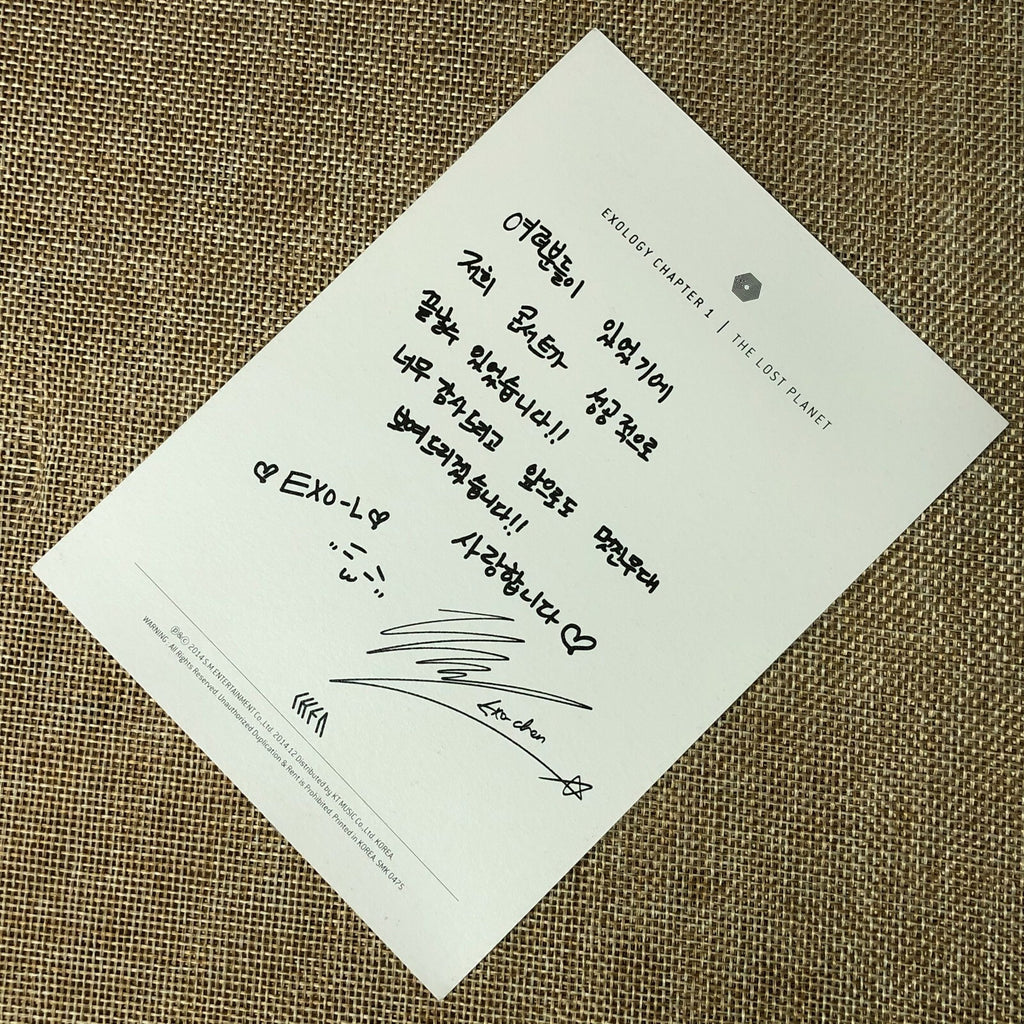 EXOLOGY CHAPTER 1 | THE LOST PLANET
여러분들이 있었기에
저희 콘서트가 성공적으로
끝날수 있었습니다!!
너무 감사드리고 앞으로도 멋진무대
보여드리겠습니다!!
♡ EXO-L ♡ 사랑합니다 ♡
Exo chen
℗&© 2014 S.M.ENTERTAINMENT Co., Ltd. 2014.12 Distributed by KT MUSIC Co., Ltd. KOREA.
WARNING : All Rights Reserved. Unauthorized Duplication & Rent is Prohibited. Printed in KOREA. SMK 0475